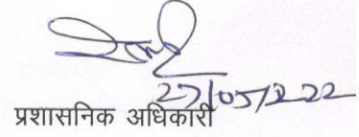 27/05/2022
प्रशासनिक अधिकारी